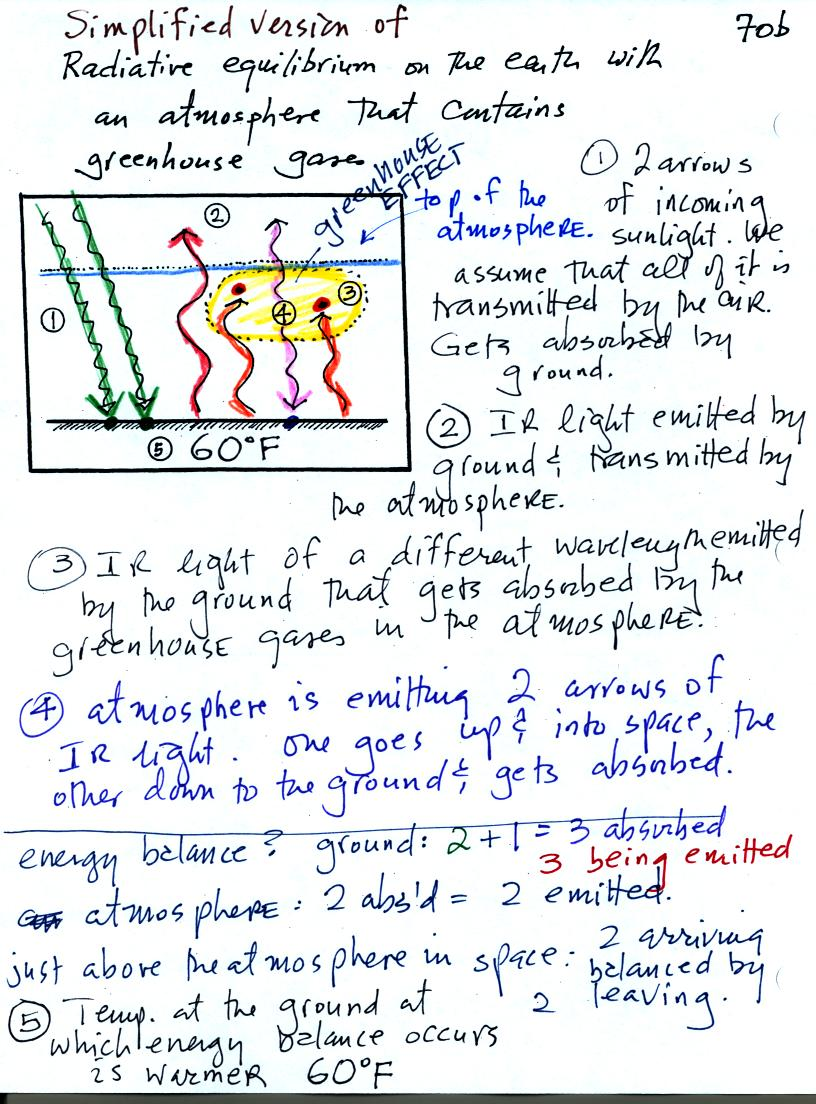 Simplified version of
70b
Radiative equilibrium on the earth with
an atmosphere that contains
greenhouse gases
greenhouse
EFFECT
top of the
atmosphere.
①
②
③
④
⑤ 60°F
① 2 arrows
of incoming
sunlight. We
assume that all of it is
transmitted by the air.
Gets absorbed by
ground.
② IR light emitted by
ground & transmitted by
the atmosphere.
③ IR light of a different wavelength emitted
by the ground that gets absorbed by the
greenhouse gases in the atmosphere.
④ atmosphere is emitting 2 arrows of
IR light. one goes up & into space, the
other down to the ground & gets absorbed.
energy balance? ground: 2 + 1 = 3 absorbed
3 being emitted
atmosphere: 2 abs'd = 2 emitted.
just above the atmosphere in space: 2 arriving
balanced by
2 leaving.
⑤ Temp. at the ground at
which energy balance occurs
is warmer 60°F